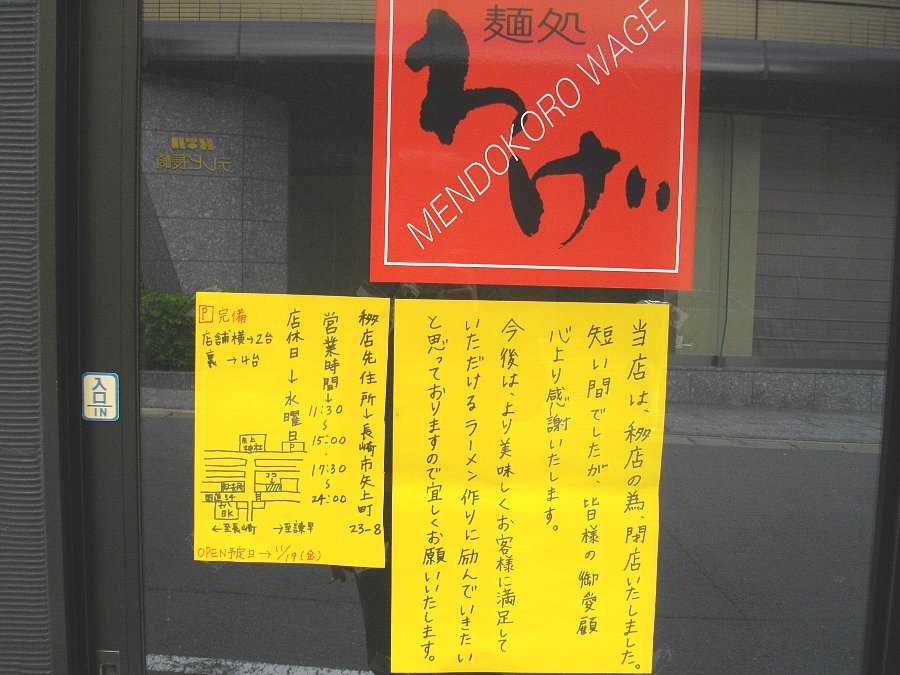 麺処
わげ
MENDOKORO WAGE
テレビ長崎
入口
IN
当店は、移店の為閉店いたしました。
短い間でしたが、皆様の御愛顧
心より感謝いたします。
今後は、より美味しくお客様に満足して
いただけるラーメン作りに励んでいきたい
と思っておりますので宜しくお願いいたします。
移店先住所→長崎市矢上町
23-8
営業時間→11:30
~
15:00
・
17:30
~
24:00
店休日→水曜日
P 完備
店舗横→2台
裏→4台
矢上
神社
ココ
国道34
BK
←至長崎
→至諫早
OPEN予定日→11/19(金)